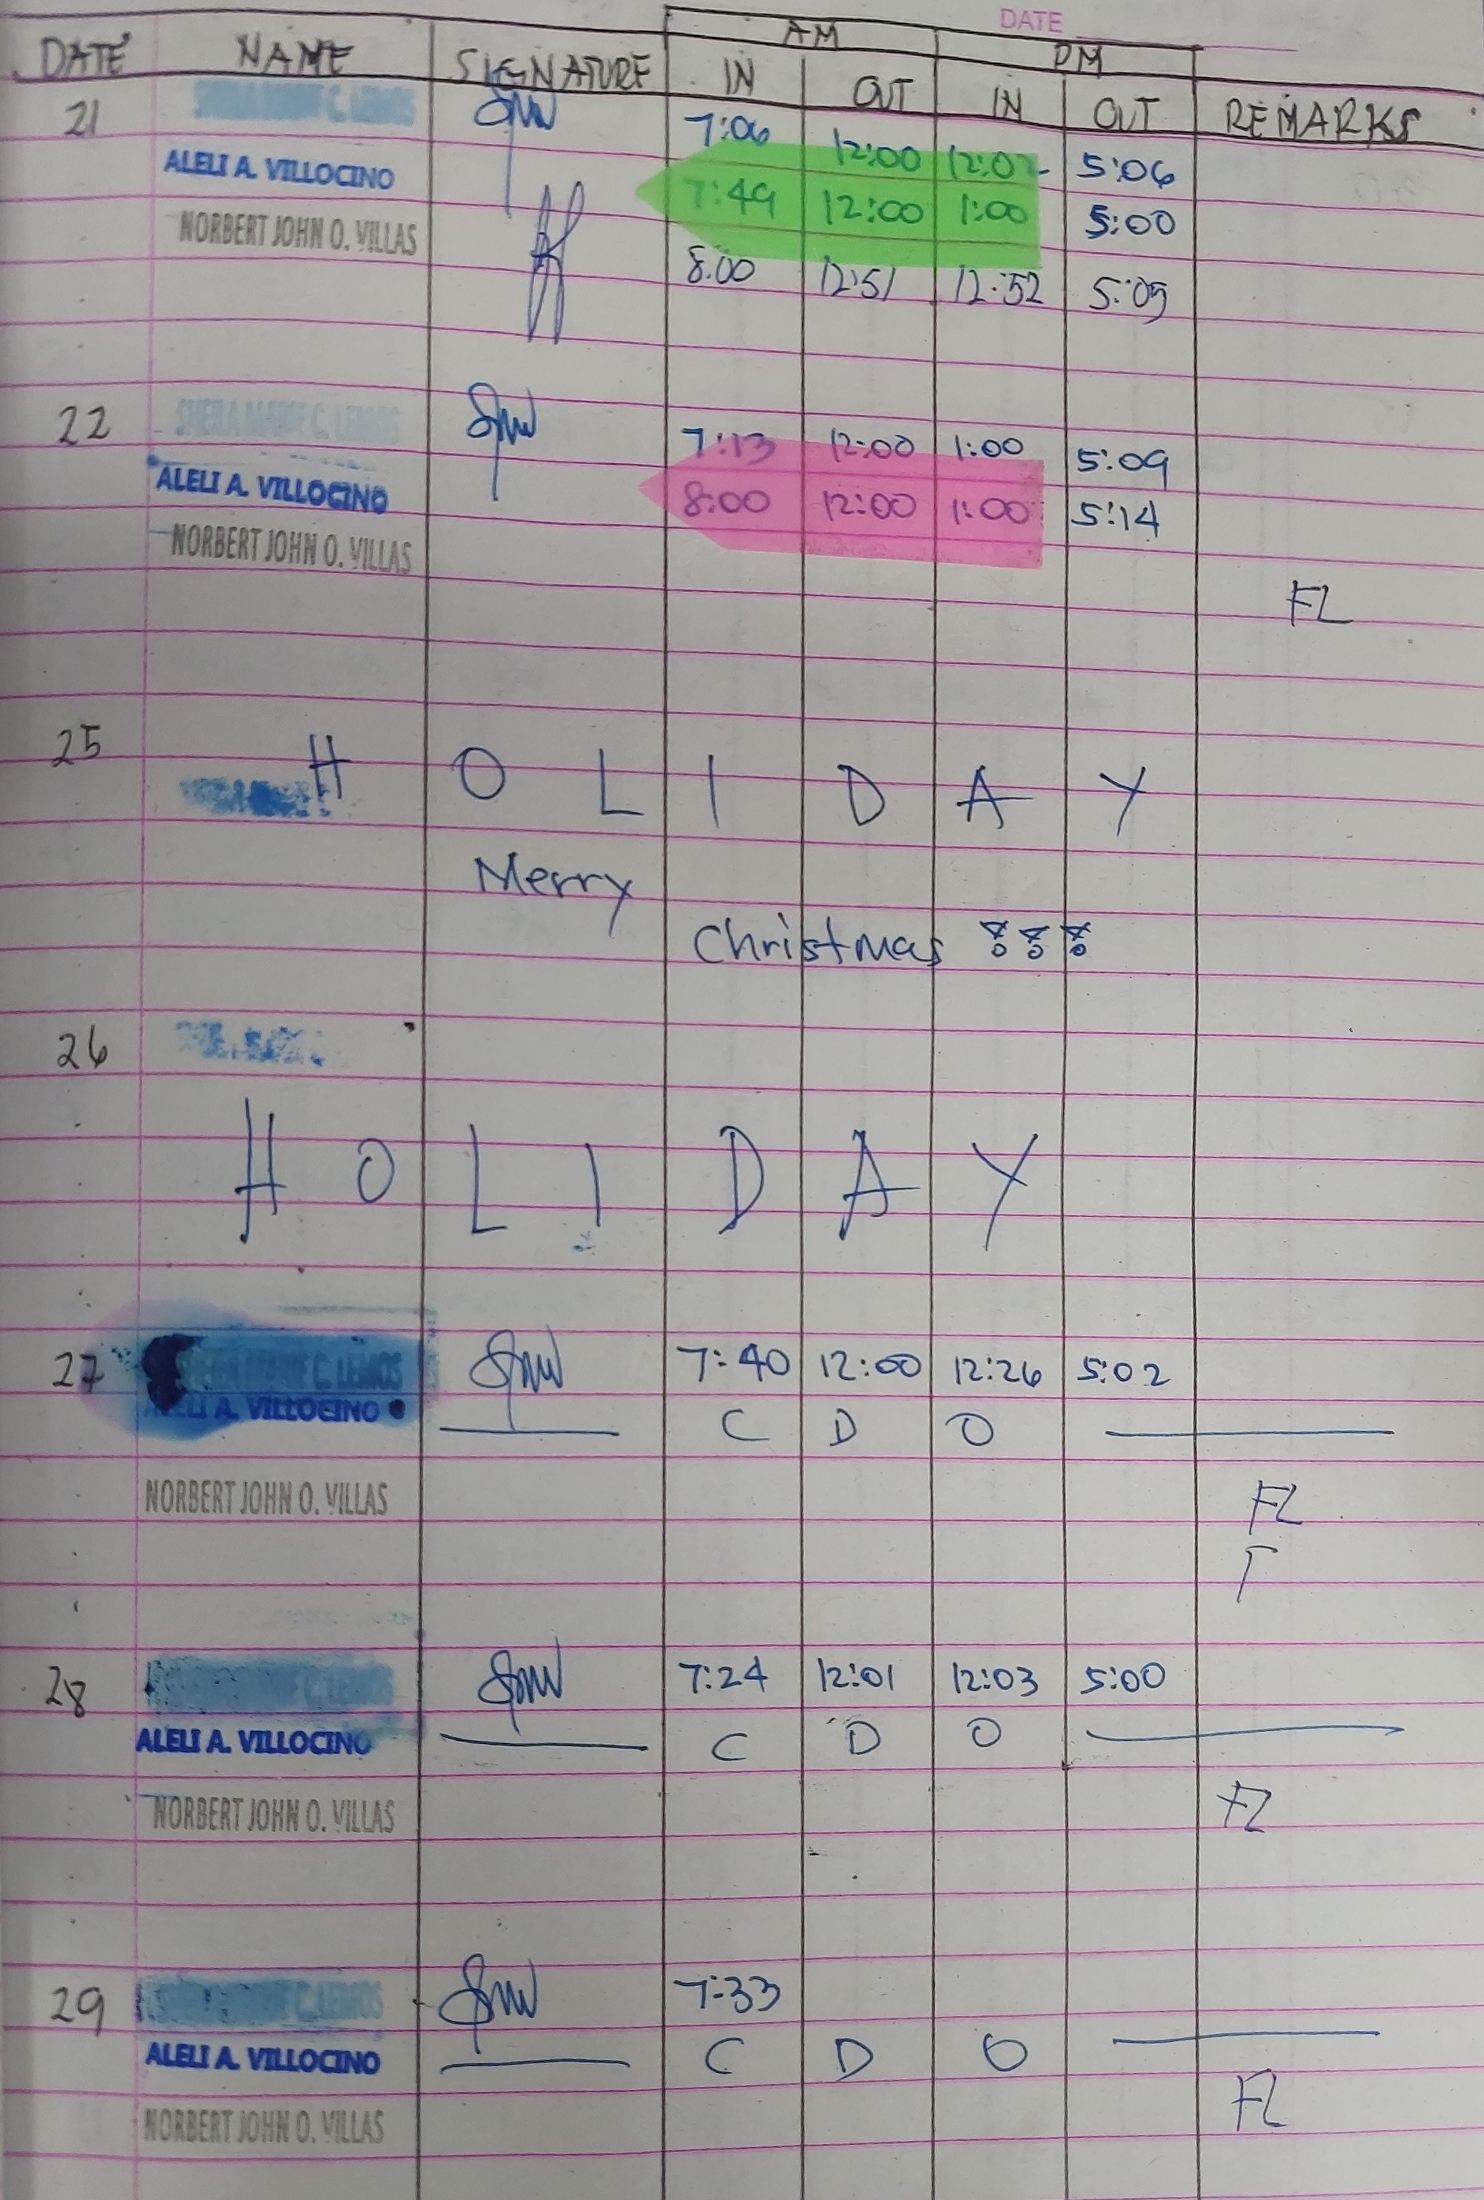 DATE
AM PM
DATE NAME SIGNATURE IN OUT IN OUT REMARKS
21 SHEILA MARIE C. LEMOS 7:06 12:00 12:02 5:06
ALELI A. VILLOCINO 7:49 12:00 1:00 5:00
NORBERT JOHN O. VILLAS 8:00 12:51 12:52 5:05
22 SHEILA MARIE C. LEMOS 7:13 12:00 1:00 5:09
ALELI A. VILLOCINO 8:00 12:00 1:00 5:14
NORBERT JOHN O. VILLAS FL
25 H O L I D A Y
Merry
Christmas
26
H O L I D A Y
27 SHEILA MARIE C. LEMOS 7:40 12:00 12:26 5:02
ALELI A. VILLOCINO C D O
NORBERT JOHN O. VILLAS FL
28 C. LEMOS 7:24 12:01 12:03 5:00
ALELI A. VILLOCINO C D O
NORBERT JOHN O. VILLAS FL
29 C. LEMOS 7:33
ALELI A. VILLOCINO C D O
NORBERT JOHN O. VILLAS FL